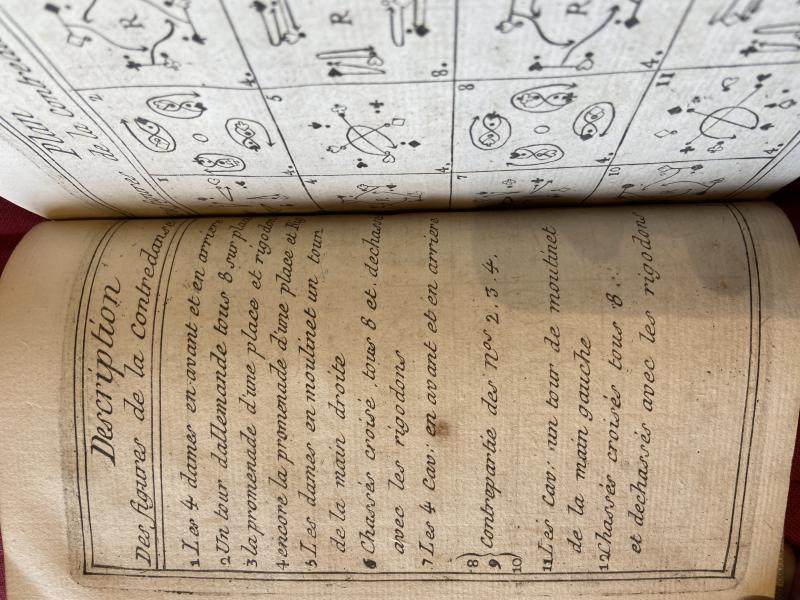 Description
Des figures de la contredanse
1 Les 4 dames en avant et en arriere
2 Un tour dallemande tous 8 sur place
3 la promenade d'une place et rigodon
4 encore la promenade d'une place et Rig
5 Les dames en moulinet un tour
de la main droite
6 Chassés croisé tous 8 et dechassé
avec les rigodons
7 Les 4 Cav: en avant et en arriere
8
9 } Contrepartie des nos 2. 3. 4.
10
11 Les Cav: un tour de moulinet
de la main gauche
12 Chassés croisés tous 8.
et dechassés avec les rigodons
Plan
de la contredanse
1
2
R
4.
R
8.
R
4.
4
5
4.
4.
7
8
4.
10
11
4.